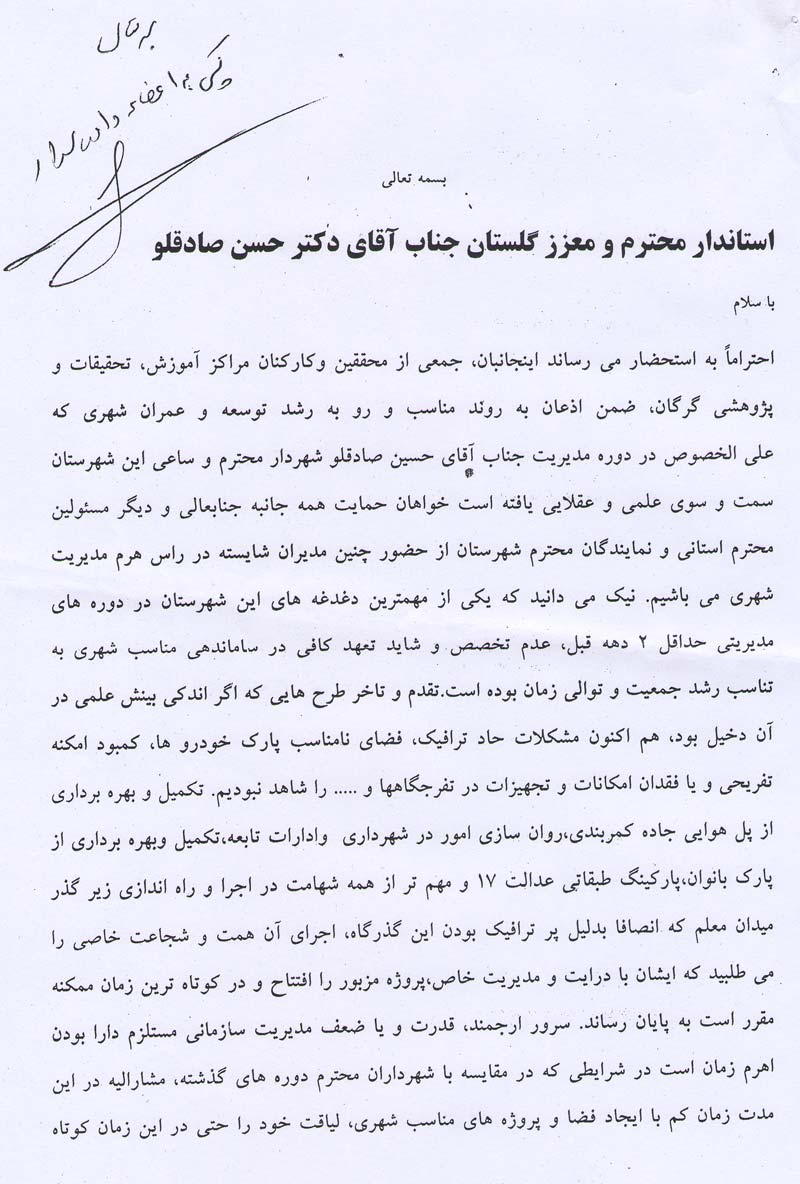 بسمه تعالی
استاندار محترم و معزز گلستان جناب آقای دکتر حسن صادقلو
با سلام
احتراماً به استحضار می رساند اینجانبان، جمعی از محققین وکارکنان مراکز آموزش، تحقیقات و
پژوهشی گرگان، ضمن اذعان به روند مناسب و رو به رشد توسعه و عمران شهری که
علی الخصوص در دوره مدیریت جناب آقای حسین صادقلو شهردار محترم و ساعی این شهرستان
سمت و سوی علمی و عقلایی یافته است خواهان حمایت همه جانبه جنابعالی و دیگر مسئولین
محترم استانی و نمایندگان محترم شهرستان از حضور چنین مدیران شایسته در راس هرم مدیریت
شهری می باشیم. نیک می دانید که یکی از مهمترین دغدغه های این شهرستان در دوره های
مدیریتی حداقل ۲ دهه قبل، عدم تخصص و شاید تعهد کافی در ساماندهی مناسب شهری به
تناسب رشد جمعیت و توالی زمان بوده است.تقدم و تاخر طرح هایی که اگر اندکی بینش علمی در
آن دخیل بود، هم اکنون مشکلات حاد ترافیک، فضای نامناسب پارک خودرو ها، کمبود امکنه
تفریحی و یا فقدان امکانات و تجهیزات در تفرجگاهها و ..... را شاهد نبودیم. تکمیل و بهره برداری
از پل هوایی جاده کمربندی،روان سازی امور در شهرداری وادارات تابعه،تکمیل وبهره برداری از
پارک بانوان،پارکینگ طبقاتی عدالت ۱۷ و مهم تر از همه شهامت در اجرا و راه اندازی زیر گذر
میدان معلم که انصافا بدلیل پر ترافیک بودن این گذرگاه، اجرای آن همت و شجاعت خاصی را
می طلبید که ایشان با درایت و مدیریت خاص،پروژه مزبور را افتتاح و در کوتاه ترین زمان ممکنه
مقرر است به پایان رساند. سرور ارجمند، قدرت و یا ضعف مدیریت سازمانی مستلزم دارا بودن
اهرم زمان است در شرایطی که در مقایسه با شهرداران محترم دوره های گذشته، مشارالیه در این
مدت زمان کم با ایجاد فضا و پروژه های مناسب شهری، لیاقت خود را حتی در این زمان کوتاه